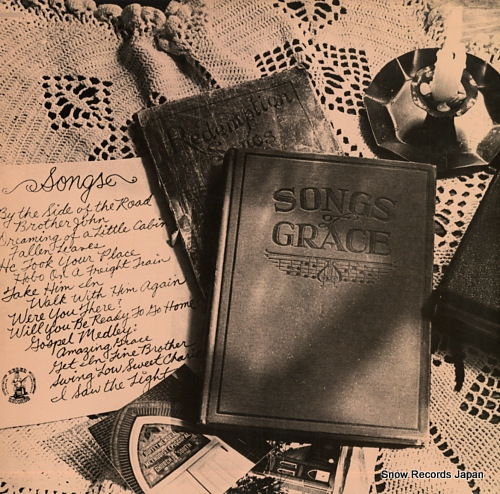 Songs
By the Side of the Road
Brother John
Dreaming of a Little Cabin
Fallen Leaves
He Took Your Place
Hobo On A Freight Train
Take Him In
Walk With Him Again
Were You There?
Will You Be Ready To Go Home
Gospel Medley:
Amazing Grace
Get In Line Brother
Swing Low Sweet Chariot
I Saw the Light
Redemption
Songs
SONGS
of
GRACE
Snow Records Japan